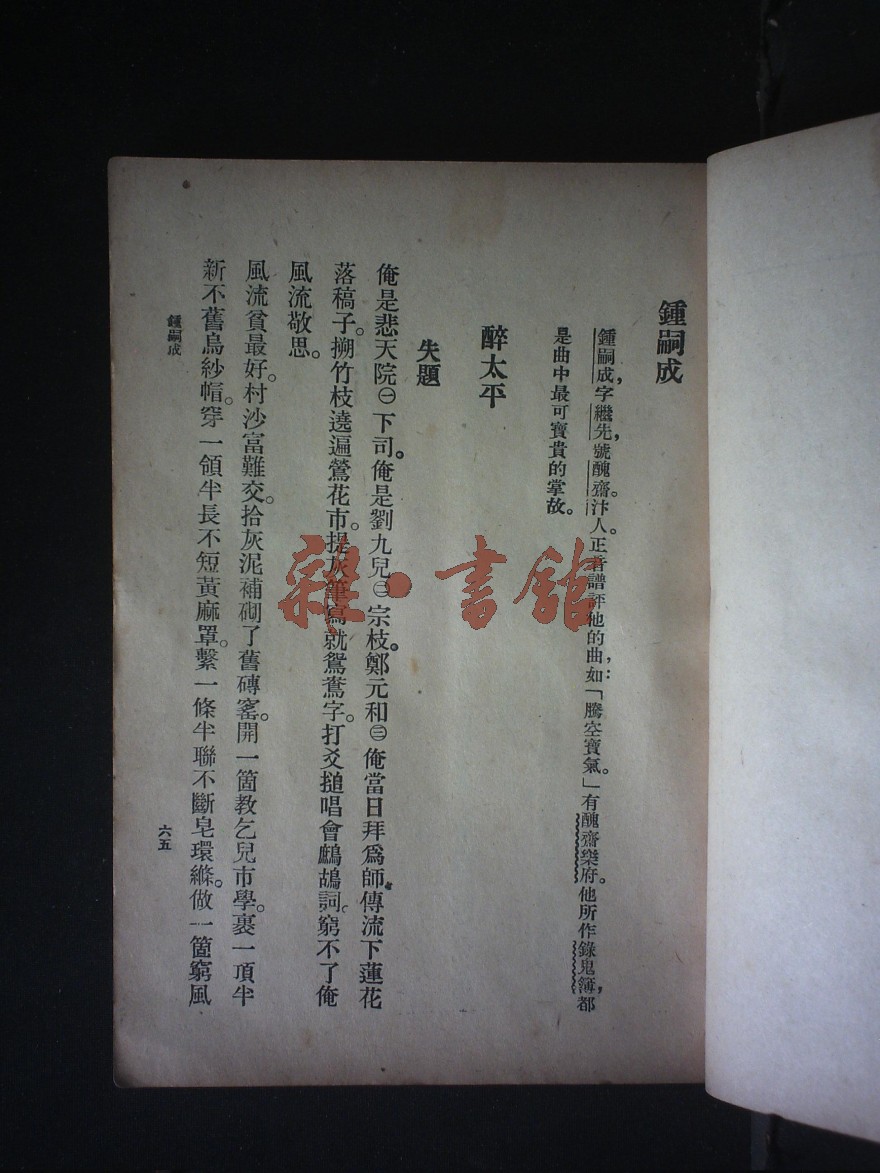 鍾嗣成
鍾嗣成，字繼先，號醜齋。汴人。正音譜評他的曲，如：「騰空寶氣。」有醜齋樂府。他所作錄鬼簿，都
是曲中最可寶貴的掌故。
醉太平
失題
俺是悲天院㊀下司。俺是劉九兒㊁宗枝。鄭元和㊂俺當日拜爲師。傳流下蓮花
落稿子。搠竹枝遶遍鶯花市。提灰筆寫就鴛鴦字。打爻搥唱會鷓鴣詞。窮不了俺
風流敬思。
風流貧最好。村沙富難交。拾灰泥補砌了舊磚窰。開一箇教乞兒市學。裹一頂半
新不舊烏紗帽。穿一領半長不短黃麻罩。繫一條半聯不斷皂環縧。做一箇窮風
鍾嗣成
六五
雜·書館